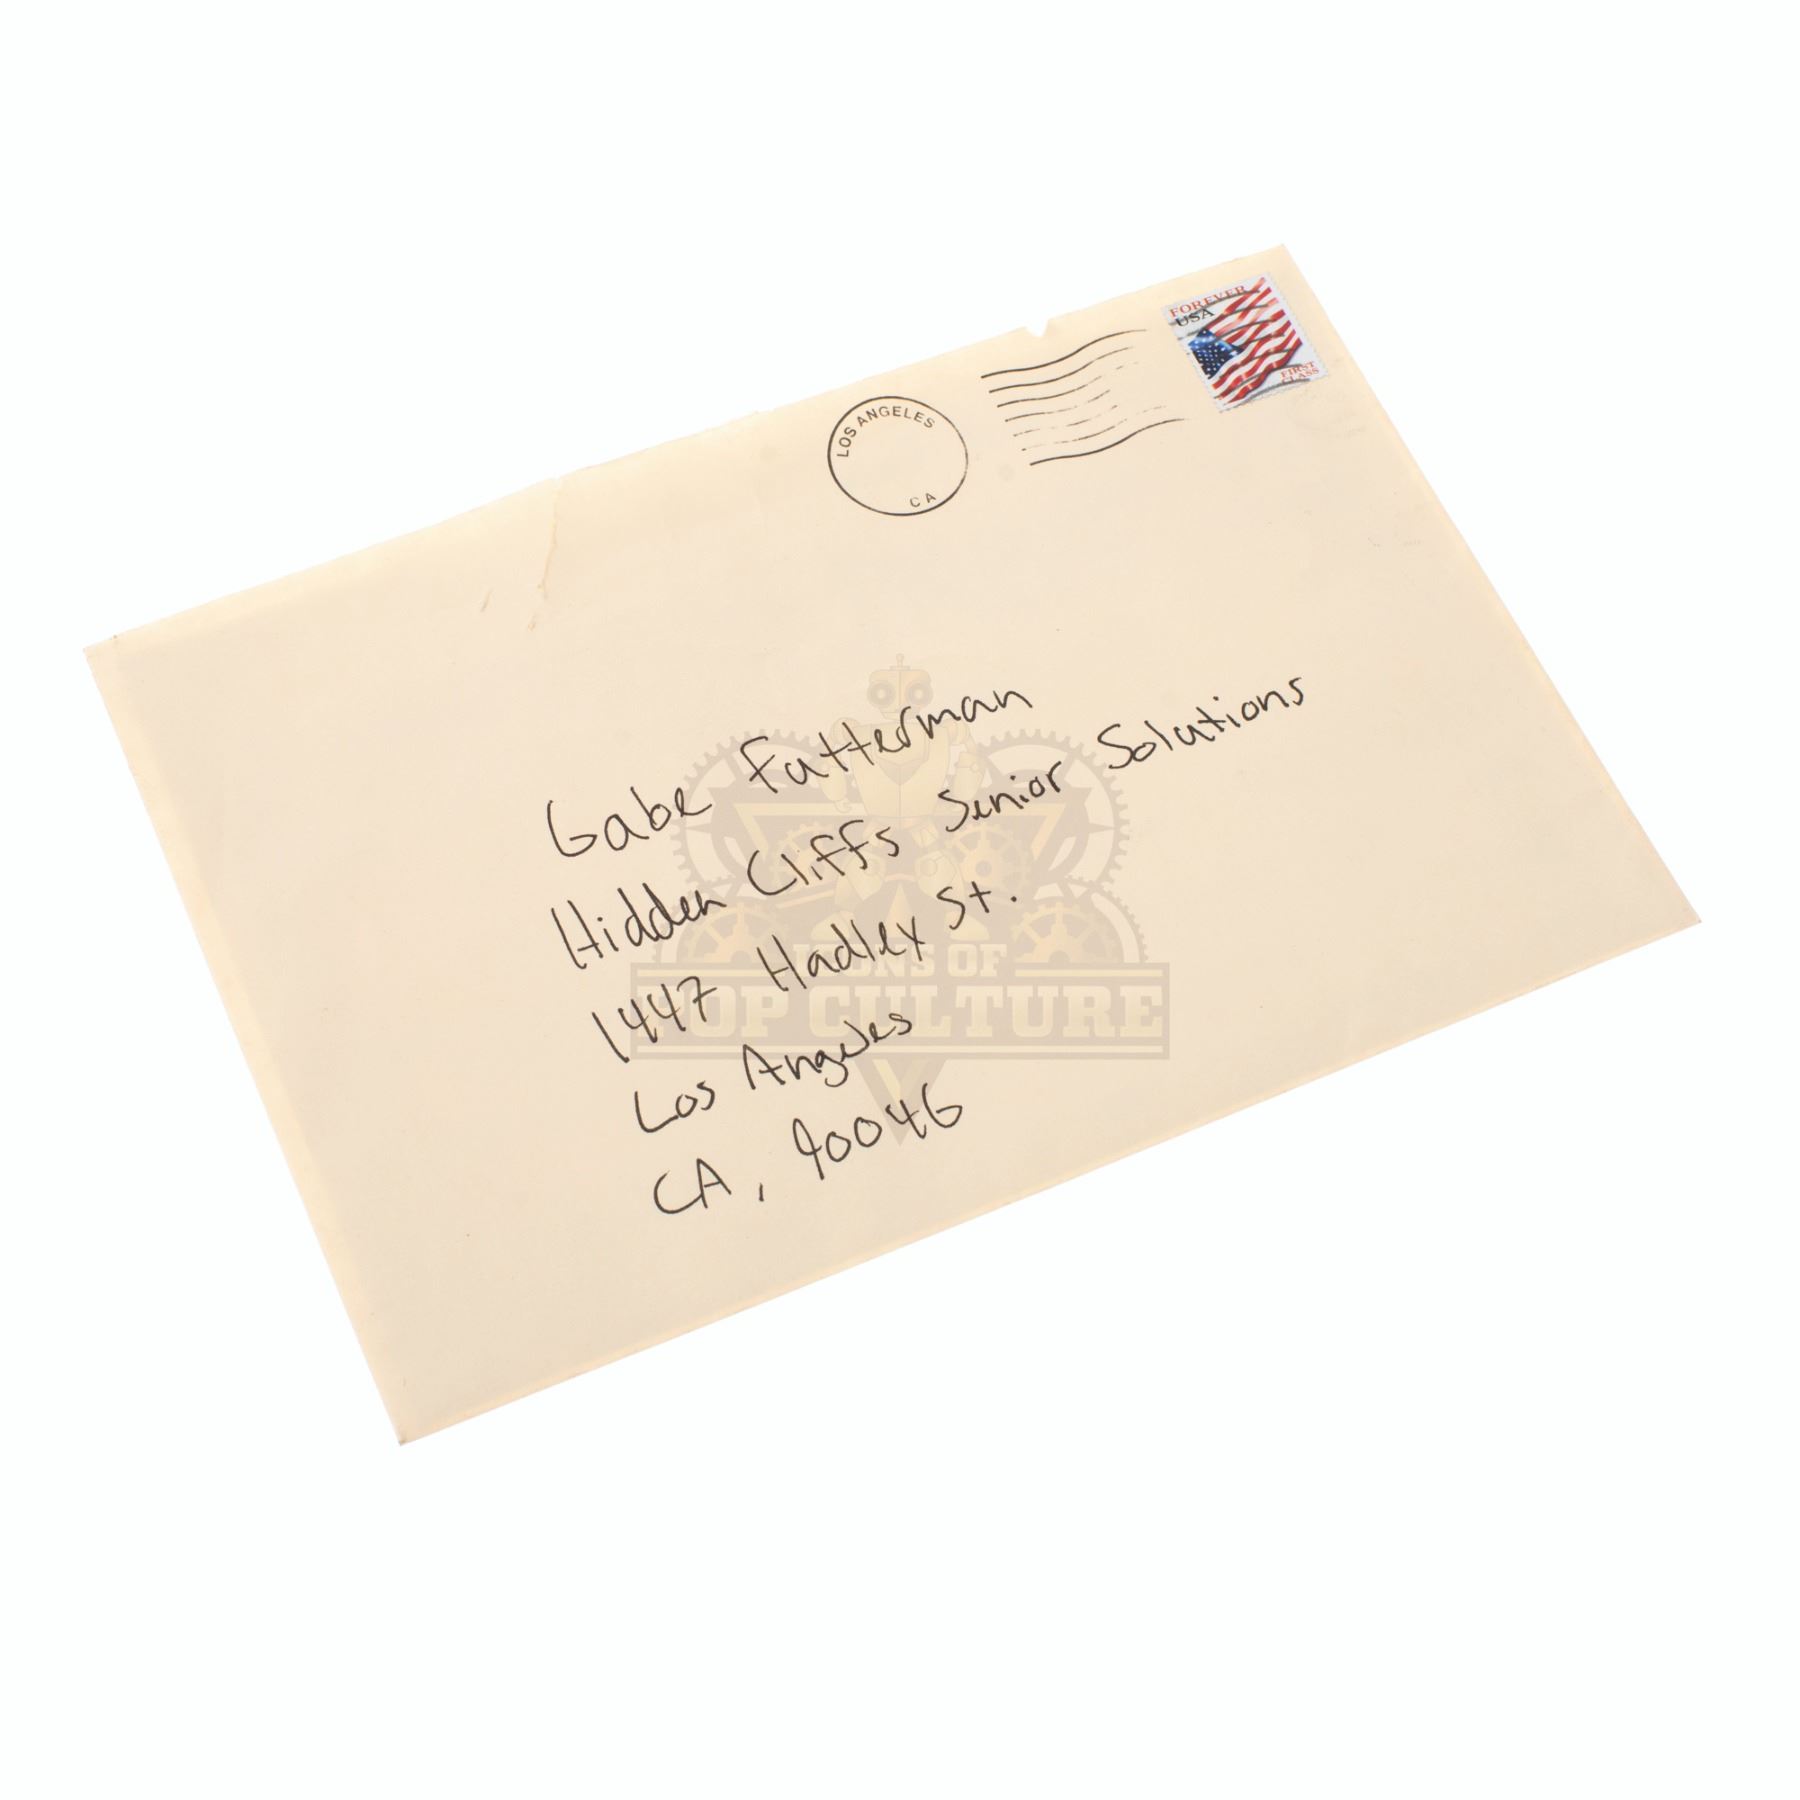 FOREVER
USA
FIRST
CLASS
LOS ANGELES
CA
Gabe Futterman
Hidden Cliffs Senior Solutions
1447 Hadley St.
Los Angeles
CA, 90046
ICONS OF
POP CULTURE